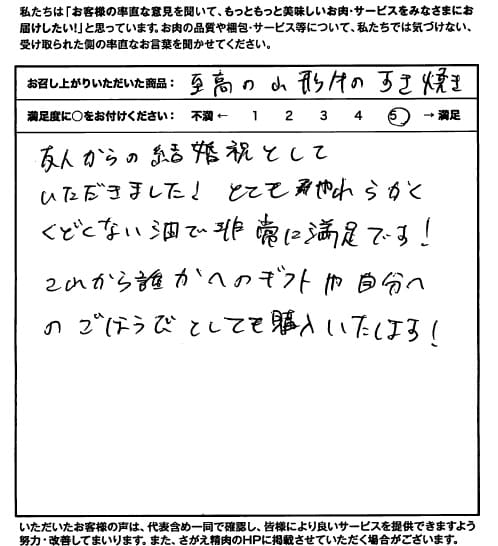 私たちは「お客様の率直な意見を聞いて、もっともっと美味しいお肉・サービスをみなさまにお
届けしたい!」と思っています。お肉の品質や梱包・サービス等について、私たちでは気づけない、
受け取られた側の率直なお言葉を聞かせてください。
お召し上がりいただいた商品： 至高の山形牛のすき焼き
満足度に○をお付けください： 不満 ← 1 2 3 4 5 → 満足
友人からの結婚祝として
いただきました! とても やわらかく
くどくない油で非常に満足です!
これから誰かへのギフトや自分へ
のごほうびとしても購入いたします!
いただいたお客様の声は、代表含め一同で確認し、皆様により良いサービスを提供できますよう
努力・改善してまいります。また、さがえ精肉のHPに掲載させていただく場合がございます。